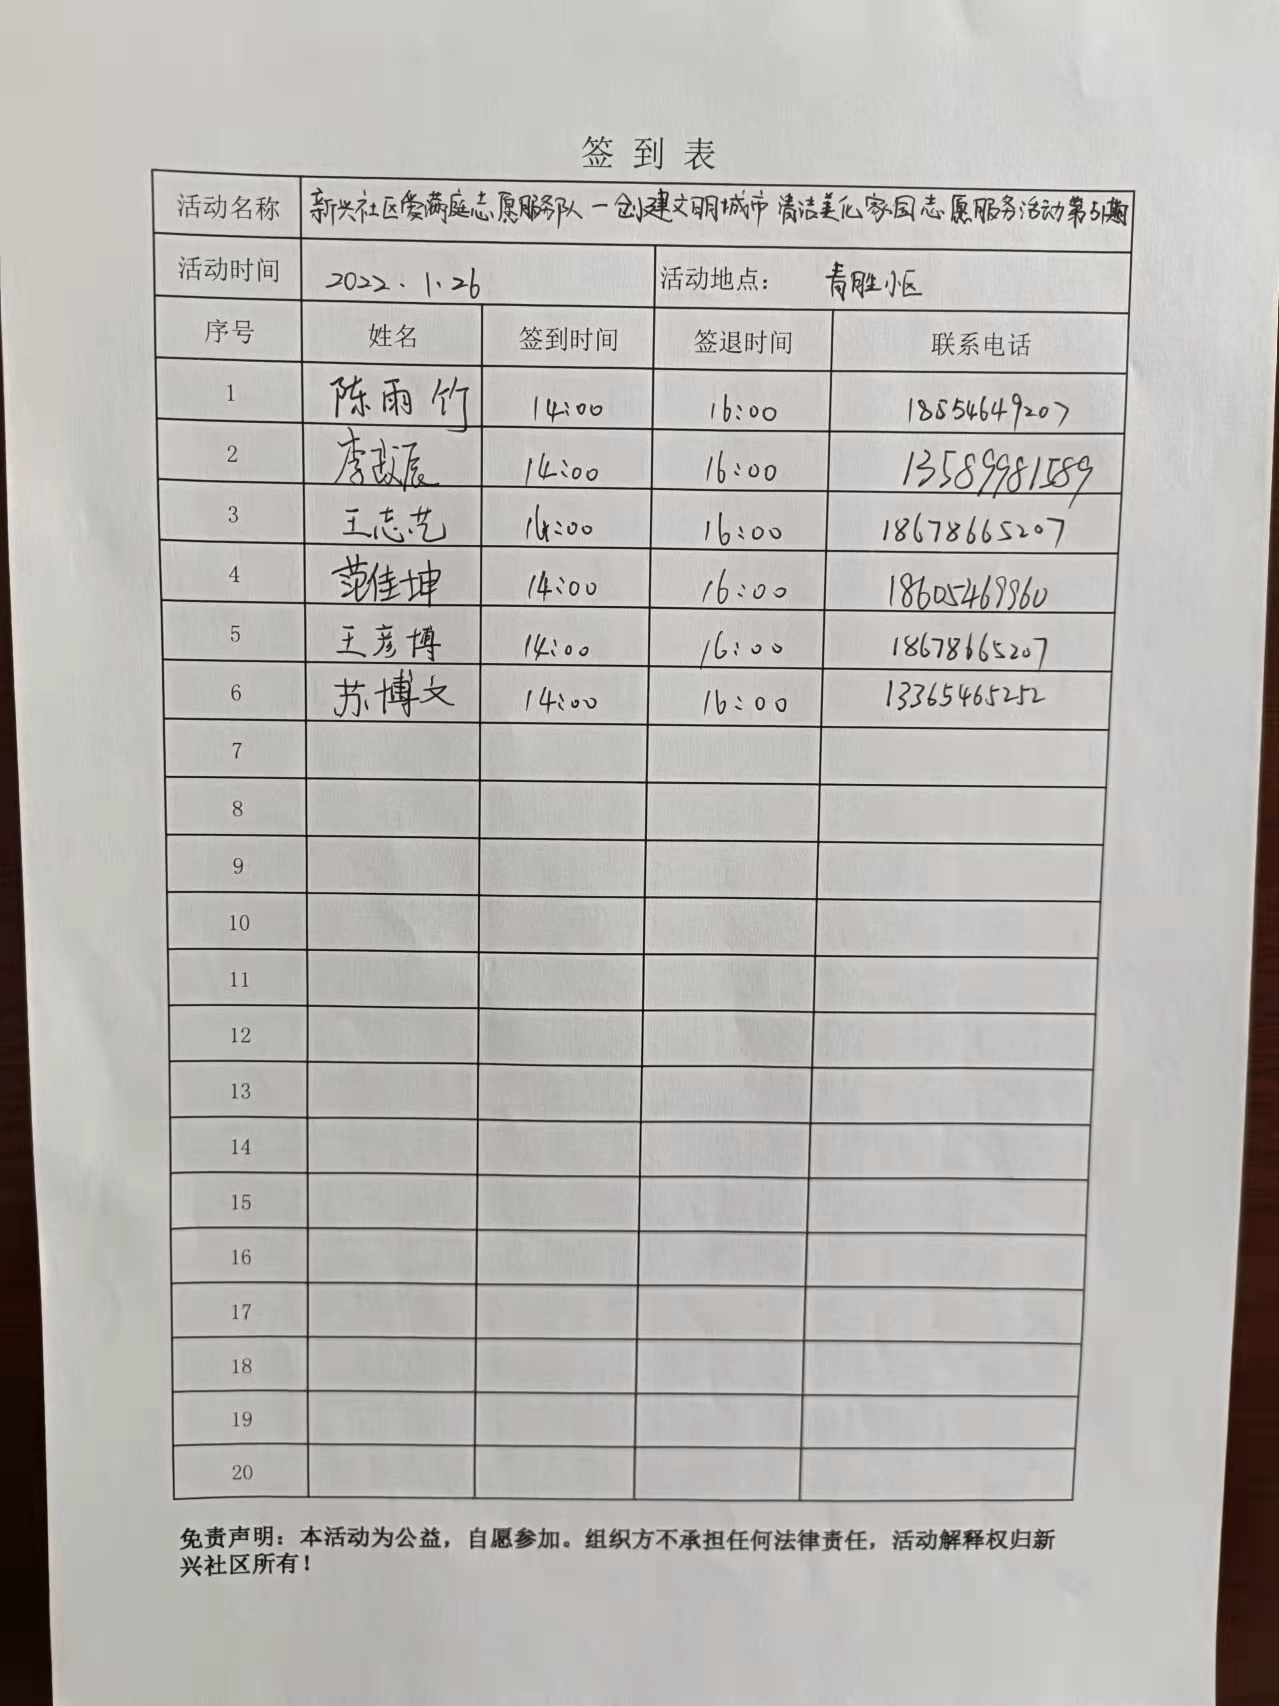 签到表
活动名称 新兴社区爱满庭志愿服务队一创建文明城市 清洁美化家园志愿服务活动第51期
活动时间 2022.1.26 活动地点： 青胜小区
序号 姓名 签到时间 签退时间 联系电话
1 陈雨竹 14:00 16:00 18554649207
2 李政辰 14:00 16:00 13589981589
3 王志艺 14:00 16:00 18678665207
4 范佳坤 14:00 16:00 18605469960
5 王彦博 14:00 16:00 18678665207
6 苏博文 14:00 16:00 13365465252
7
8
9
10
11
12
13
14
15
16
17
18
19
20
免责声明：本活动为公益，自愿参加。组织方不承担任何法律责任，活动解释权归新
兴社区所有！